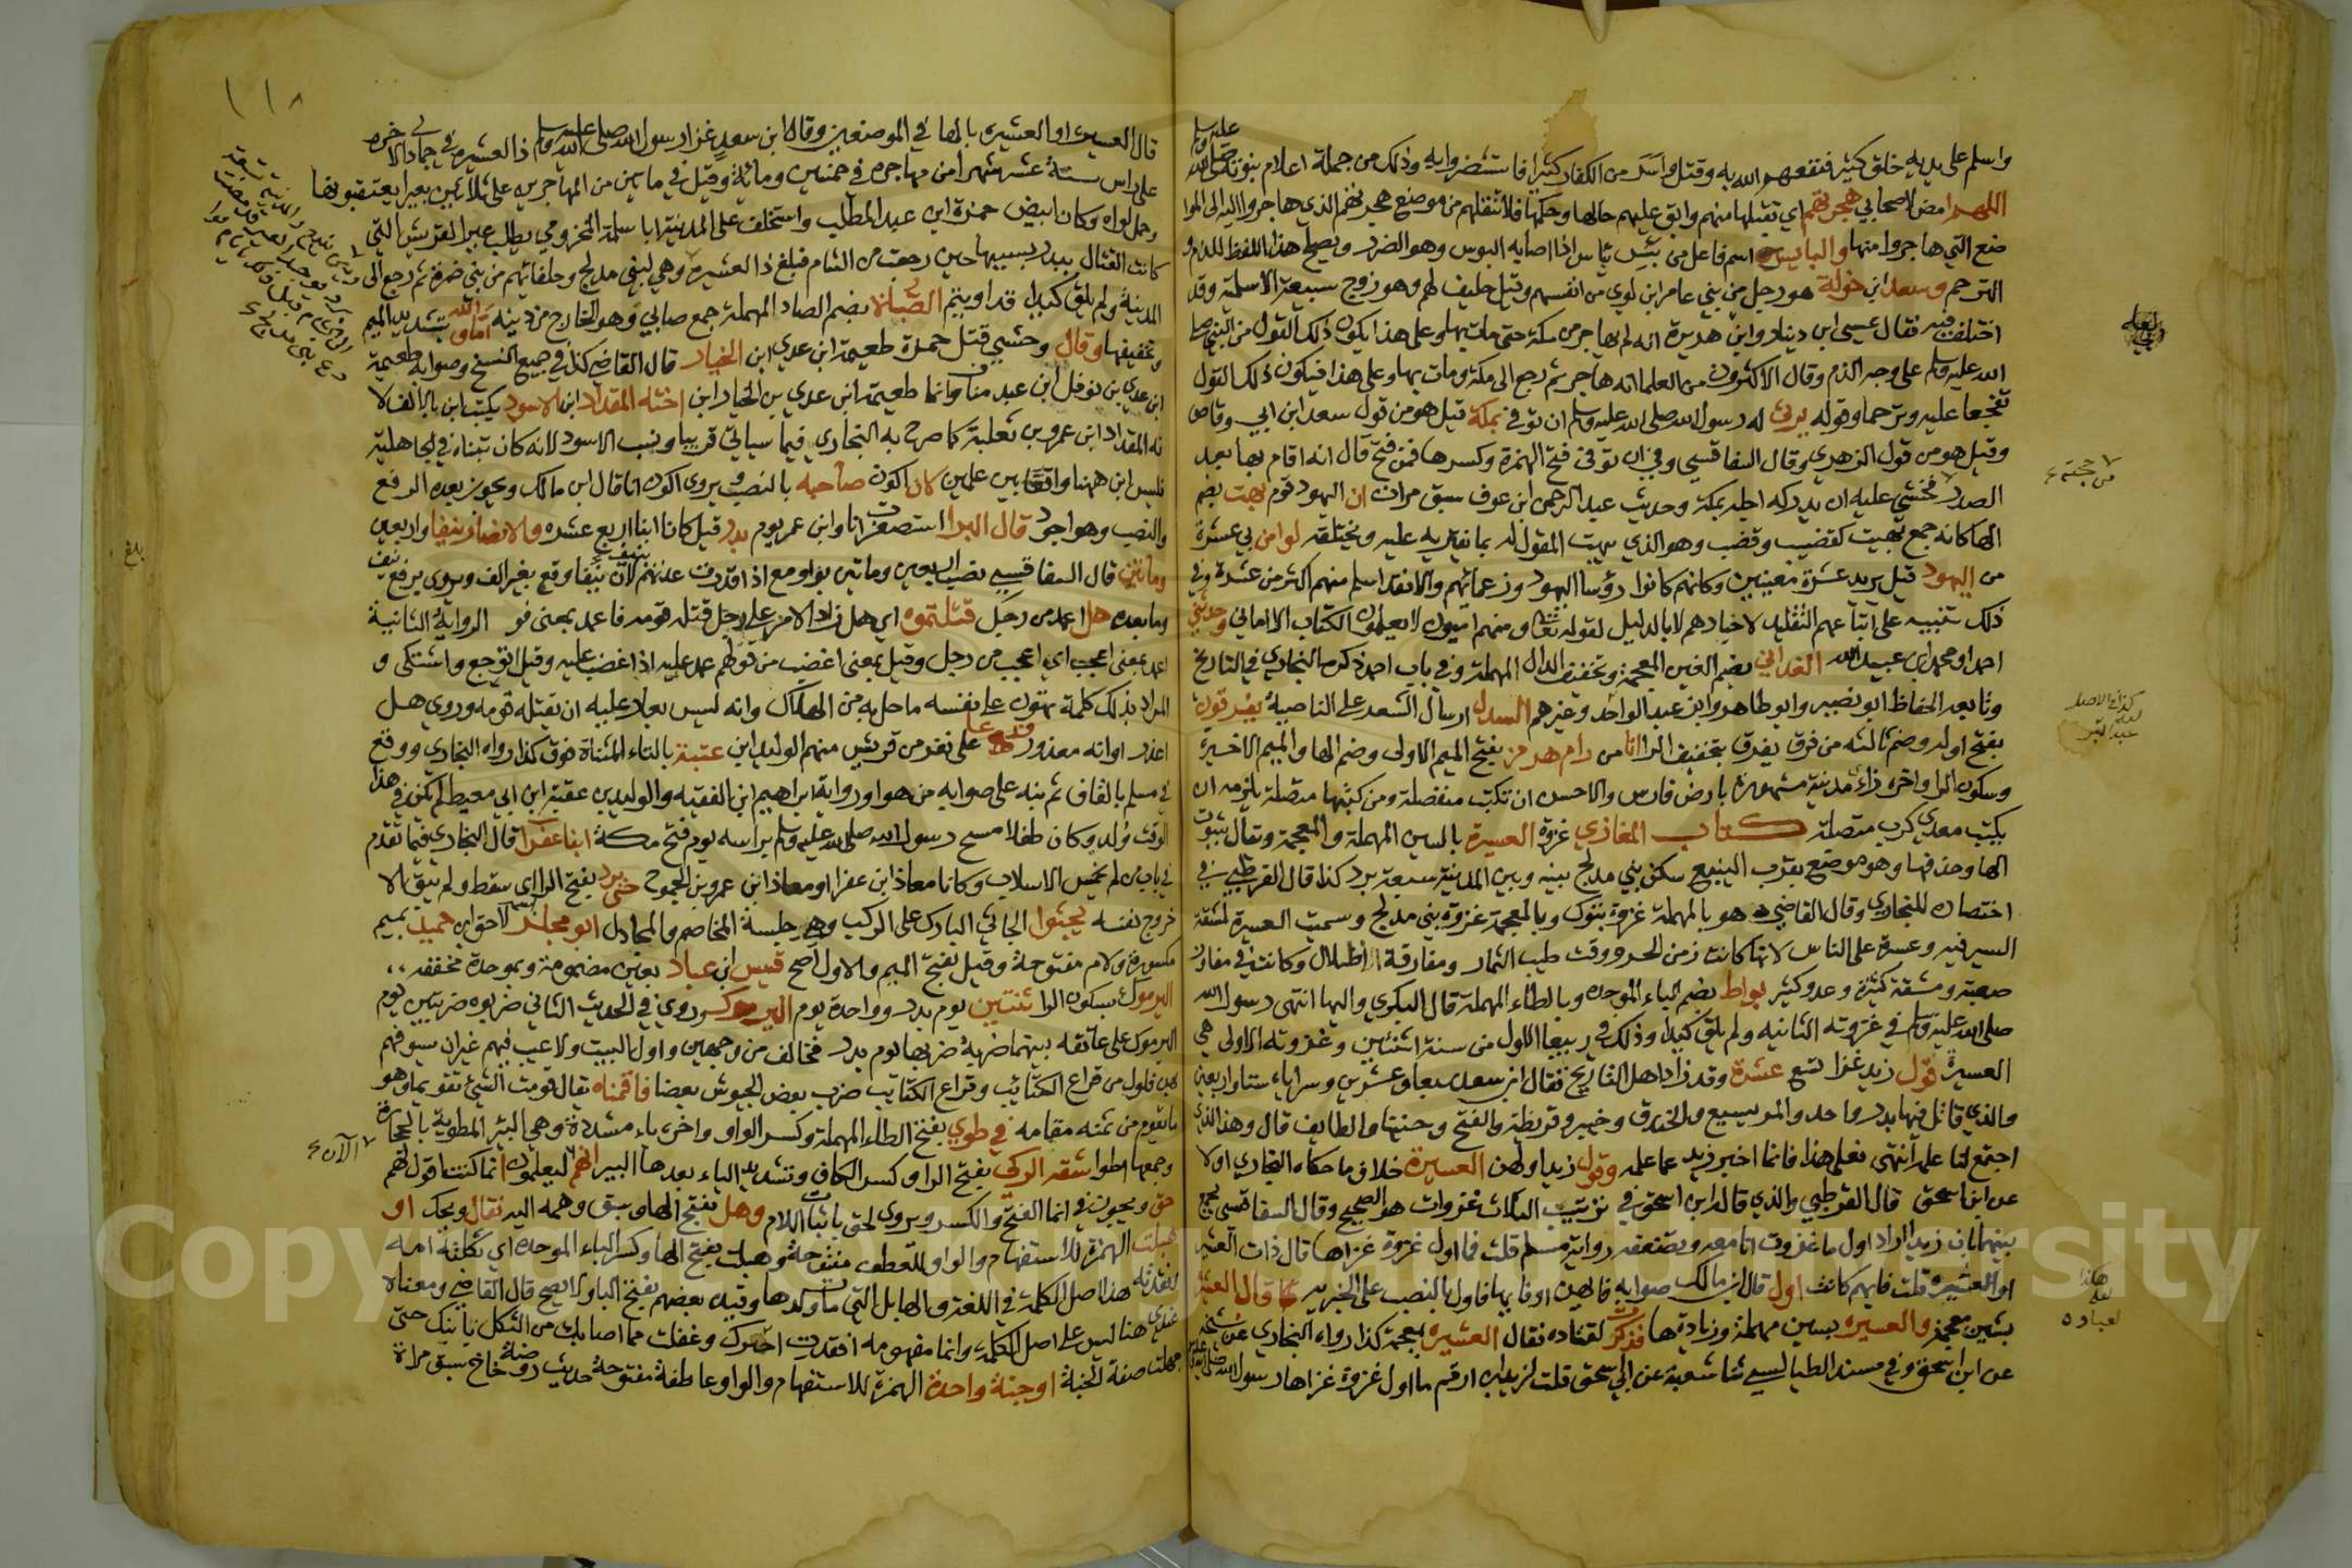 واسلم على يديه خلق كثير فنفعهم الله به وقتل واسر من الكفار كثيرا فاستضروا به وذلك من جملة اعلام نبوته صلى الله عليه وسلم
اللهم امض لاصحابي هجرتهم اي تقبلها منهم وابق عليهم حالها وحكمها فلا تنقلهم من موضع هجرتهم الذي هاجروا اليه الى الموا
ضع التي هاجروا منها والبايس اسم فاعل من بئس يباس اذا اصابه البوس وهو الضرر ويصلح هذا اللفظ للذم و
الترحم وسعد ابن خولة هو رجل من بني عامر ابن لوي من انفسهم وقيل حليف لهم وهو زوج سبيعة الاسلمية وقد
اختلف فيه فقال عيسى ابن دينار وابن هديرة انه لم يهاجر من مكة حتى مات بها وعلى هذا يكون ذلك القول من النبي صلى
الله عليه وسلم على وجه الذم وقال الاكثرون من العلما انه هاجر ثم رجع الى مكة ومات بها وعلى هذا فيكون ذلك القول
تفجعا عليه وترحما وقوله يرثي له رسول الله صلى الله عليه وسلم ان توفي بمكة قيل هو من قول سعد ابن ابي وقاص
وقيل هو من قول الزهري وقال السفاقسي وفي ان توفى فتح الهمزة وكسرها فمن فتح قال انه اقام بها بعد
الصدر فخشي عليه ان يدركه اجله بمكة وحديث عبد الرحمن ابن عوف سبق مرات ان اليهود قوم بهت بضم
الها كانه جمع بهيت كقضيب وقضب وهو الذي يبهت المقول له بما يفتريه عليه ويختلقه لو امن بي عشرة
من اليهود قيل يريد عشرة معينين وكانهم كانوا رؤسا اليهود وزعمائهم والا فقد اسلم منهم اكثر من عشرة وفي
ذلك تنبيه على اتباعهم التقليد لاخبارهم لا بالدليل لقوله تعالى ومنهم اميون لا يعلمون الكتاب الا اماني وحدثني
احمد او محمد ابن عبيد الله الغداني بضم الغين المعجمة وتخفيف الدال المهملة وفي باب احمد ذكره البخاري في التاريخ
وتابعه الحفاظ ابو نصير وابو طاهر وابن عبد الواحد وغيرهم السدل ارسال الشعر على الناصية يفرقون
بفتح اوله وضم ثالثه من فرق يفرق بتخفيف الرا انا من رام هرمز بفتح الميم الاولى وضم الها والميم الاخيرة
وسكون الرا واخره زاء مدينة مشهورة بارض فارس والاحسن ان تكتب منفصلة ومن كتبها متصلة يلزمه ان
يكتب معدي كرب متصلة كتاب المغازي غزوة العسيرة بالسين المهملة والمعجمة ويقال بثبوت
الها وحذفها وهو موضع بقرب الينبع سكن بني مدلج بينه وبين المدينة سبعة برد كذا قال القرطبي في
اختصاره للبخاري وقال القاضي هو بالمهملة غزوة تبوك وبالمعجمة غزوة بني مدلج وسميت العسيرة لمشقة
السير فيه وعسرة على الناس لانها كانت زمن الحر ووقت طيب الثمار ومفارقة الظلال وكانت في مفاوز
صعبة ومشقة كثيرة وعدو كثير بواط بضم الباء الموحدة وبالطاء المهملة قال البكري واليها انتهى رسول الله
صلى الله عليه وسلم في غزوته الثانيه ولم يلق كيدا وذلك في ربيع الاول من سنة اثنتين وغزوته الاولى هي
العسيرة قول زيد غزا تسع عشرة وقد زاد اهل التاريخ فقال ابن سعد سبعا وعشرين وسراياه ستا واربعين
والذي قاتل فيها بدر واحد والمريسيع والخندق وخيبر وقريظة والفتح وحنينا والطايف قال وهذا الذي
اجتمع لنا علمه انتهى فعلى هذا فانما اخبر زيد عما علمه وقول زيد اولهن العسيرة خلاف ما حكاه البخاري اولا
عن ابن اسحق قال القرطبي والذي قاله ابن اسحق في ترتيب الثلاث غزوات هو الصحيح وقال السفاقسي يجمع
بينهما بان زيدا اراد اول ما غزوت انا معه ويضعفه رواية مسلم قلت فما اول غزوة غزاها قال ذات العشير
او العشيرة قلت فايهم كانت اول قال ابن مالك صوابه فايهن او فايها فاول بالنصب على الخبرية قال العشير
بشين معجمة والعسيره بسين مهملة وزيادة ها فذكرت لقتاده فقال العشيره بمعجمة كذا رواه البخاري عن شيخه
عن ابن اسحق وفي مسند الطيالسي ثنا شعبة عن ابي اسحق قلت لزيد ابن ارقم ما اول غزوة غزاها رسول الله صلى الله عليه وسلم
من حجته ع
كذا في الاصل
لعله
عبد البر
هكذا
لعله
لعباده
١١٨
قال العسيرة او العشيرة بالها في الموضعين وقال ابن سعد غزا رسول الله صلى الله عليه وسلم ذا العشيرة في جمادى الاخره
على راس ستة عشر شهرا من مهاجره في خمسين ومائة وقيل في مايتين من المهاجرين على ثلاثين بعيرا يعتقبونها
وحمل لواه وكان ابيض حمزة ابن عبد المطلب واستخلف على المدينة ابا سلمة المخزومي يطلب عير القريش التي
كانت القتال ببدر بسببها حين رجعت من الشام فبلغ ذا العشيرة وهي لبني مدلج وحلفائهم من بني ضمرة ثم رجع الى
المدينة ولم يلق كيدا قد اويتم الصباة بضم الصاد المهملة جمع صابي وهو الخارج من دينه اما والله بتشديد الميم
وتخفيفها وقال وحشي قتل حمزة طعيمة ابن عدي ابن الخيار قال القاضي كذا في جميع النسخ وصوابه طعيمة
ابن عدي بن نوفل ابن عبد مناف وانما طعيمة ابن عدي بن الخيار ابن اخته المقداد ابن الاسود يكتب ابن بالالف لا
نه المقداد ابن عمرو بن ثعلبة كما صرح به البخاري فيما سياتي قريبا ونسب الاسود لانه كان تبناه في الجاهلية
فليس ابن ههنا واقعا بين علمين لان اكون صاحبه بالنصب ويروى اكون انا قال ابن مالك ويجوز بعده الرفع
والنصب وهو اجود قال البرا استصغرت انا وابن عمر يوم بدر قيل كانا ابنا اربع عشره والانصار نيفا واربعين
ومائتين قال السفاقسي نصب اربعين ومايتين بواو مع
وما بعده هل اعمد من رجل قتلتموه اي هل زاد الامر على رجل قتله قومه فاعمد بمعنى
اعمد بمعنى اعجب اي اعجب من رجل وقيل بمعنى اغضب من قولهم عمد عليه اذا غضب عليه وقيل اتوجع واشتكى و
المراد بذلك كلمة يهون على نفسه ما حل به من الهلاك وانه ليس بعار عليه ان يقتله قومه وروي هل
اعذر اي انه معذور على نفر من قريش منهم الوليد ابن عتبة بالتاء المثناة فوق كذا رواه البخاري ووقع
في مسلم بالقاف ثم نبه على صوابه من هو اورواية ابراهيم ابن الفقيه والوليد بن عقبة ابن ابي معيط لم يكن في هذا
الوقت ولد وكان طفلا مسح رسول الله صلى الله عليه وسلم براسه يوم فتح مكة ابنا عفرا قال البخاري فيما تقدم
في باب من لم يخمس الاسلاب وكانا معاذ ابن عفرا ومعاذ ابن عمرو بن الجموح حتى برد بفتح الرا اي سقط ولم يبق الا
خروج نفسه يجثوا الجاثي البارك على الركب وهي جلسة المخاصم والمجادل ابو مجلز لاحق ابن حميد بميم
مكسورة ولام مفتوحة وقيل بفتح الميم والاول اصح قيس ابن عباد بعين مضمومة وبموحدة مخففه ،،
اليرموك بسكون الرا ثنتين يوم بدر وواحدة يوم اليرموك وروي في الحديث الثاني ضربوه ضربتين يوم
اليرموك على عاتقه بينهما ضربة ضربها يوم بدر فخالف من وجهين واول البيت ولا عيب فيهم غير ان سيوفهم
بهن فلول من قراع الكتائب وقراع الكتايب ضرب بعض الجيوش بعضا فاقمناه يقال قومت الشيء تقويما وهو
ما يقوم من ثمنه مقامه في طوي بفتح الطاء المهملة وكسر الواو واخره ياء مشددة وهي البئر المطوية بالحجارة
وجمعها اطوا شفه الركي بفتح الرا وكسر الكاف وتشديد الياء بعدها البير انهم ليعلمون انما كنت اقول لهم
حق ويجوز في انما الفتح والكسر ويروى لحق باثبات اللام وهل بفتح الها وسبق وهمه اليه فقال ويحك او
هبلت الهمزة للاستفهام والواو للعطف مفتوحة وهبلت بفتح الها وكسر الباء الموحده اي ثكلته امه
لفقدته هذا اصل الكلمة في اللغة والهابل التي مات ولدها وقيده بعضهم بفتح الباء ولا يصح قال القاضي ومعناه
عندي هنا ليس على اصل الكلمة وانما مفهومه افقدت اجرك وغفلت مما اصابك من الثكل بابنك حتى
جهلت صفة الجنة اوجنة واحدة الهمزة للاستفهام والواو عاطفة مفتوحة حديث روضة خاخ سبق مراة
الآن ع
بلغ